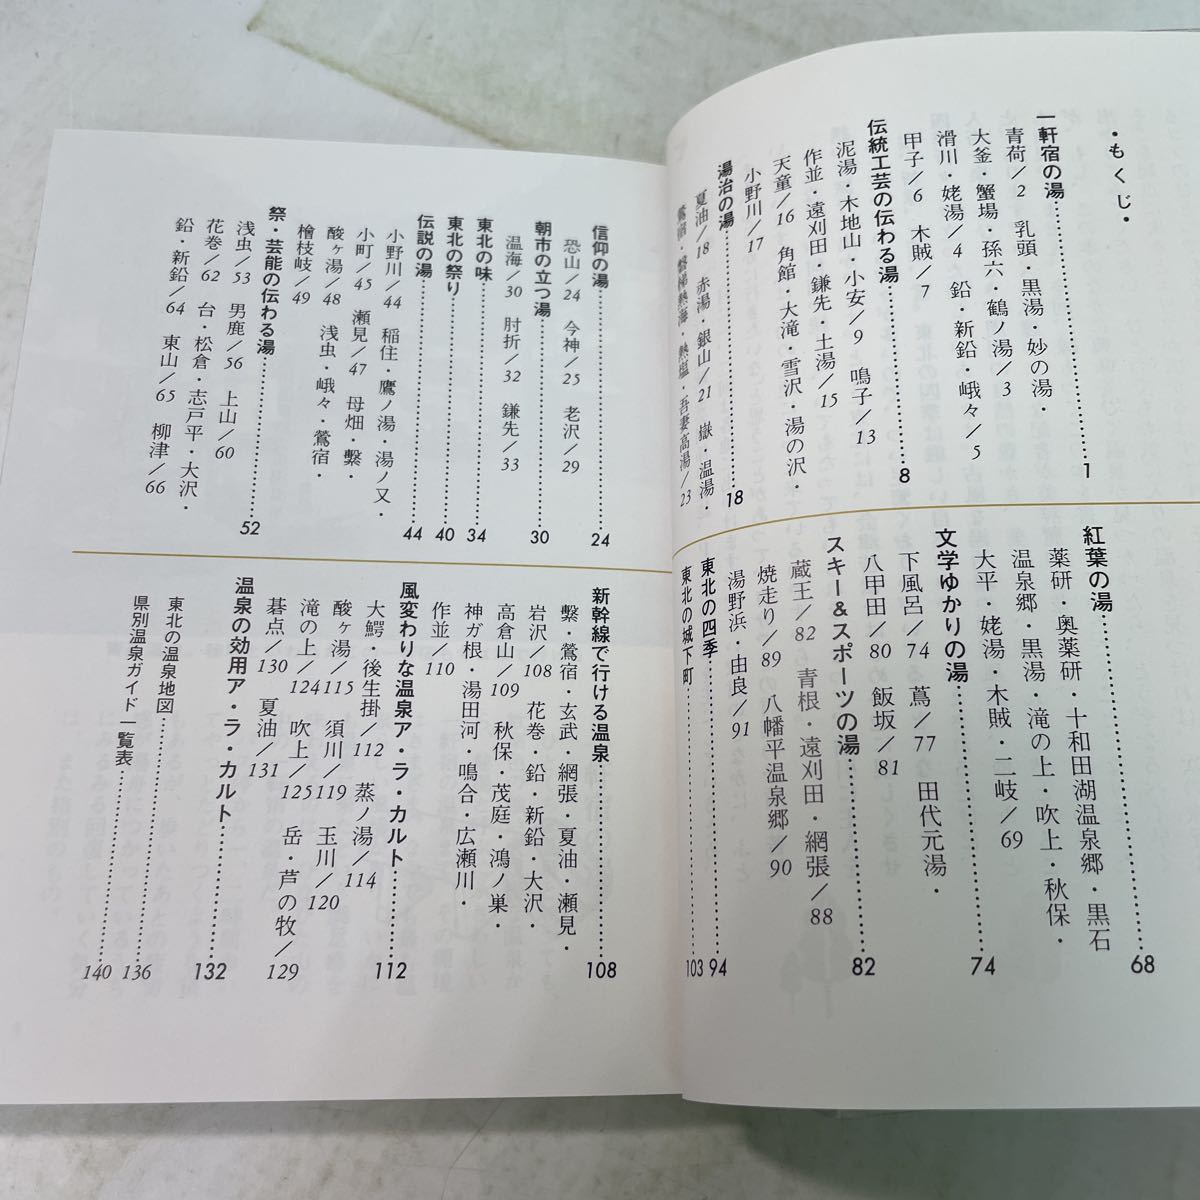 ・もくじ・
一軒宿の湯……1
青荷/2　乳頭・黒湯・妙の湯・
大釜・蟹場・孫六・鶴ノ湯/3
滑川・姥湯/4　鉛・新鉛・峨々/5
甲子/6　木賊/7
伝統工芸の伝わる湯……8
泥湯・木地山・小安/9　鳴子/13
作並・遠刈田・鎌先・土湯/15
天童/16　角館・大滝・雪沢・湯の沢・
小野川/17
湯治の湯……18
夏油/18　赤湯・銀山/21　嶽・温湯・
鶯宿・磐梯熱海・熱塩・吾妻高湯/23
信仰の湯……24
恐山/24　今神/25　老沢/29
朝市の立つ湯……30
温海/30　肘折/32　鎌先/33
東北の味……34
東北の祭り……40
伝説の湯……44
小野川/44　稲住・鷹ノ湯・湯ノ又・
小町/45　瀬見/47　母畑・繋・
酸ヶ湯/48　浅虫・峨々・鶯宿・
檜枝岐/49
祭・芸能の伝わる湯……52
浅虫/53　男鹿/56　上山/60
花巻/62　台・松倉・志戸平・大沢・
鉛・新鉛/64　東山/65　柳津/66
紅葉の湯……68
薬研・奥薬研・十和田湖温泉郷・黒石
温泉郷・黒湯・滝の上・吹上・秋保・
大平・姥湯・木賊・二岐/69
文学ゆかりの湯……74
下風呂/74　蔦/77　田代元湯・
八甲田/80　飯坂/81
スキー&スポーツの湯……82
蔵王/82　青根・遠刈田・網張/88
焼走り/89　八幡平温泉郷/90
湯野浜・由良/91
東北の四季……94
東北の城下町……103
新幹線で行ける温泉……108
繋・鶯宿・玄武・網張・夏油・瀬見・
岩沢/108　花巻・鉛・新鉛・大沢・
高倉山/109　秋保・茂庭・鴻ノ巣・
神ガ根・湯田河・鳴合・広瀬川・
作並/110
風変わりな温泉ア・ラ・カルト……112
大鰐・後生掛/112　蒸ノ湯/114
酸ヶ湯/115　須川/119　玉川/120
滝の上/124　吹上/125　岳・芦の牧/129
碁点/130　夏油/131
温泉の効用ア・ラ・カルト……132
東北の温泉地図……136
県別温泉ガイド一覧表……140